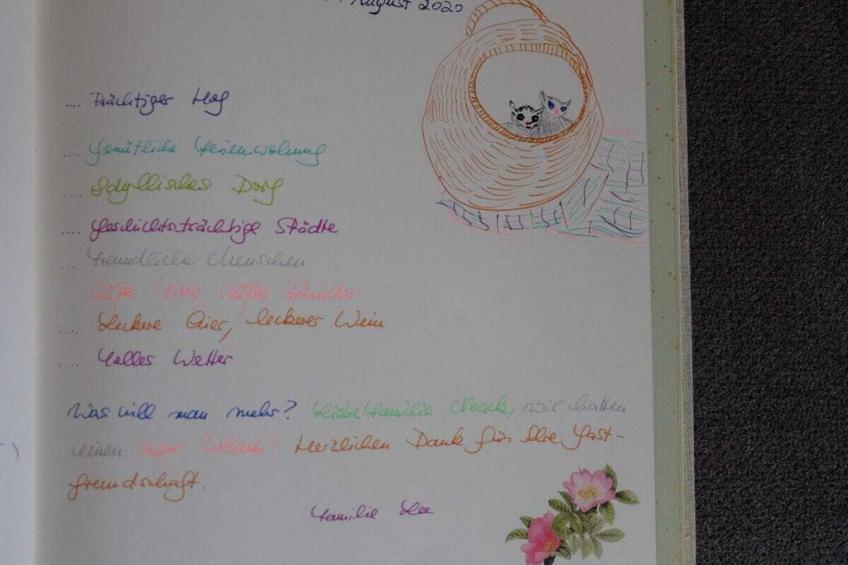 August 2020
.... Prächtiger Hof
.... Gemütliche Ferienwohnung
.... Idyllisches Dorf
.... Geschichtsträchtige Städte
.... Freundliche Menschen
.... süße
.... Leckere Eier, leckerer Wein
.... Tolles Wetter
Was will man mehr? Liebe Familie Noack, wir hatten
einen super Urlaub! Herzlichen Dank für Ihre Gast-
freundschaft.
Familie